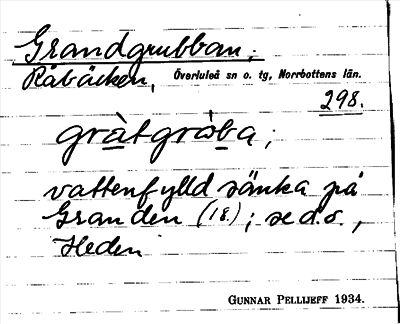 Grandgrubban;
Råbäcken, Överluleå sn o. tg, Norrbottens län.
298.
gràtgròba;
vattenfylld sänka på
Granden (18); se d.o.,
Heden
GUNNAR PELLIJEFF 1934.